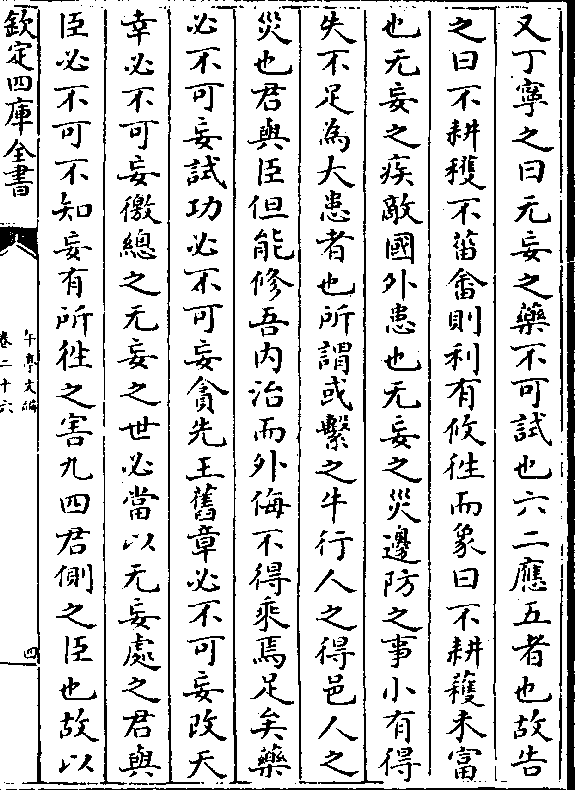 又丁寧之曰无妄之藥不可試也六二應五者也故告
之曰不耕穫不菑畬則利有攸徃而象曰不耕穫未富
也无妄之疾敵國外患也无妄之災邊防之事小有得
失不足為大患者也所謂或繫之牛行人之得邑人之
災也君與臣但能修吾内治而外侮不得乘焉足矣藥
必不可妄試功必不可妄貪先王舊章必不可妄改天
幸必不可妄徼總之无妄之世必當以无妄處之君與
臣必不可不知妄有所徃之害九四君側之臣也故以
欽定四庫全書
卷二十六
四